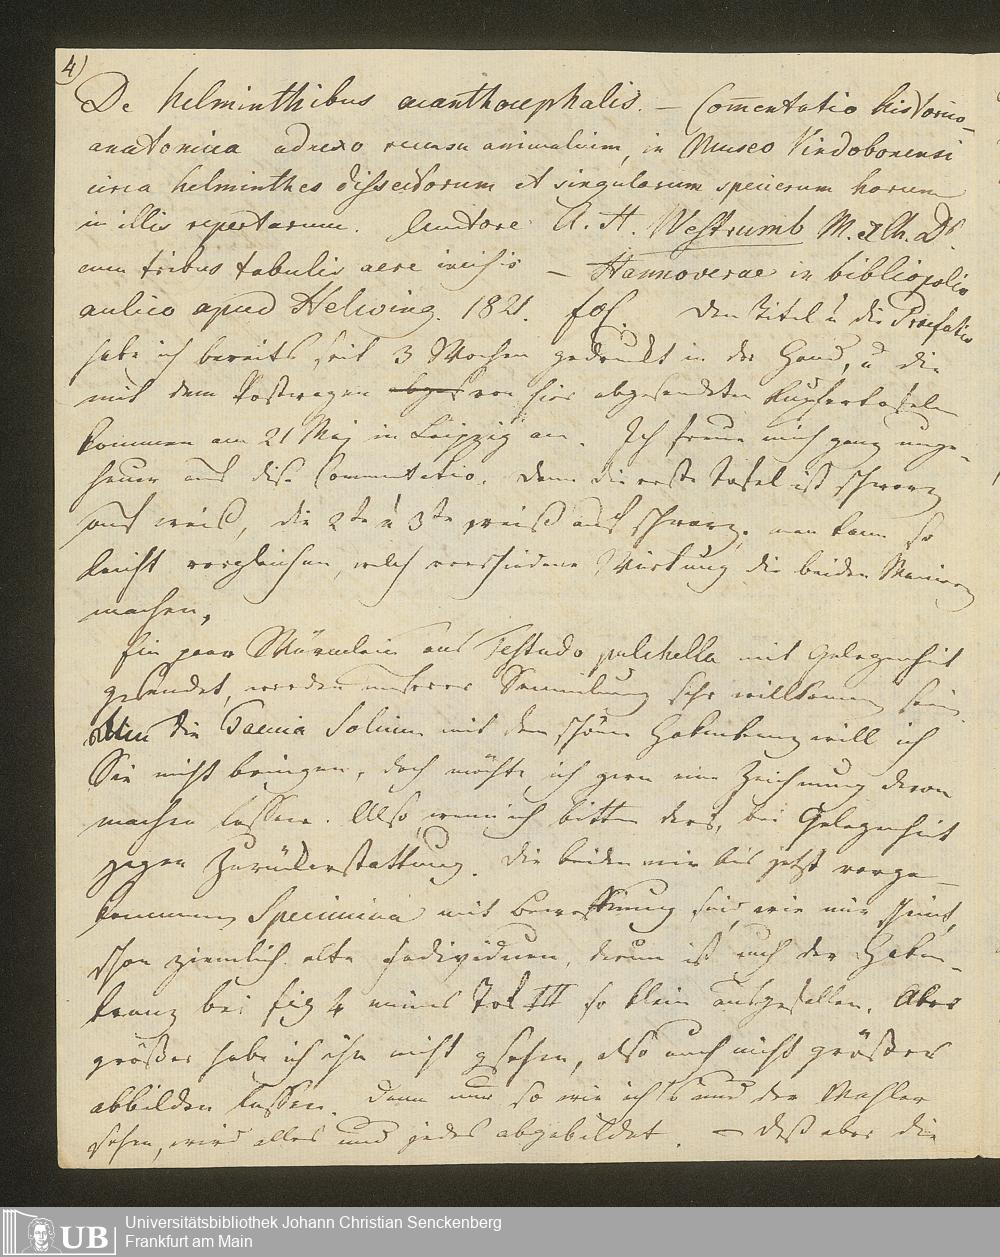 4)
De helminthibus acanthocephalis. – Com̅entatio historico-
anatomica adnexo recensu animalium, in Museo Vindobonensi
circa helminthes dissectorum et singularum specierum harum
in illis repertarum. Auctore A. H. Westrumb M. et Ch. Dr.
cum tribus tabulis aere incisis – Hannoverae in bibliopolio
aulico apud Helwing. 1821. fol. Den Titel u die Praefatio
habe ich bereits seit 3 Wochen gedruckt in der Hand, u die
mit dem Postwagen von hier abgesendeten Kupfertafeln
kommen am 21 Maj in Leipzig an. Ich freue mich ganz unge-
heuer auf diese Commentatio. Denn die erste Tafel ist schwarz
auf weiß, die 2te u 3te weiß auf schwarz. man kann so
leicht vergleichen, welch verschiedene Wirkung die beiden Manieren
machen.
Ein paar Würmlein aus Testudo pulchella mit Gelegenheit
gesendet, werden unserer Sammlung sehr willkommen sein.
Um die Taenia Solium mit dem schönen Hakenkranz will ich
Sie nicht bringen, doch möchte ich gern eine Zeichnung davon
machen lassen. Also, wenn ich bitten darf, bei Gelegenheit
gegen Zurückerstattung. Die beiden mir bis jetzt vorge-
kommenen Specimina mit Bewaffnung sind, wie mir scheint,
schon ziemlich alte Individuen, darum ist auch der Haken-
kranz bei fig 4 meines Taf III so klein ausgefallen. Aber
größer habe ich ihn nicht gesehen, also auch nicht größer
abbilden lassen. Denn nur so wie ich's und der Mahler
sehen, wird alles und jedes abgebildet. – Daß aber die
UB
Universitätsbibliothek Johann Christian Senckenberg
Frankfurt am Main